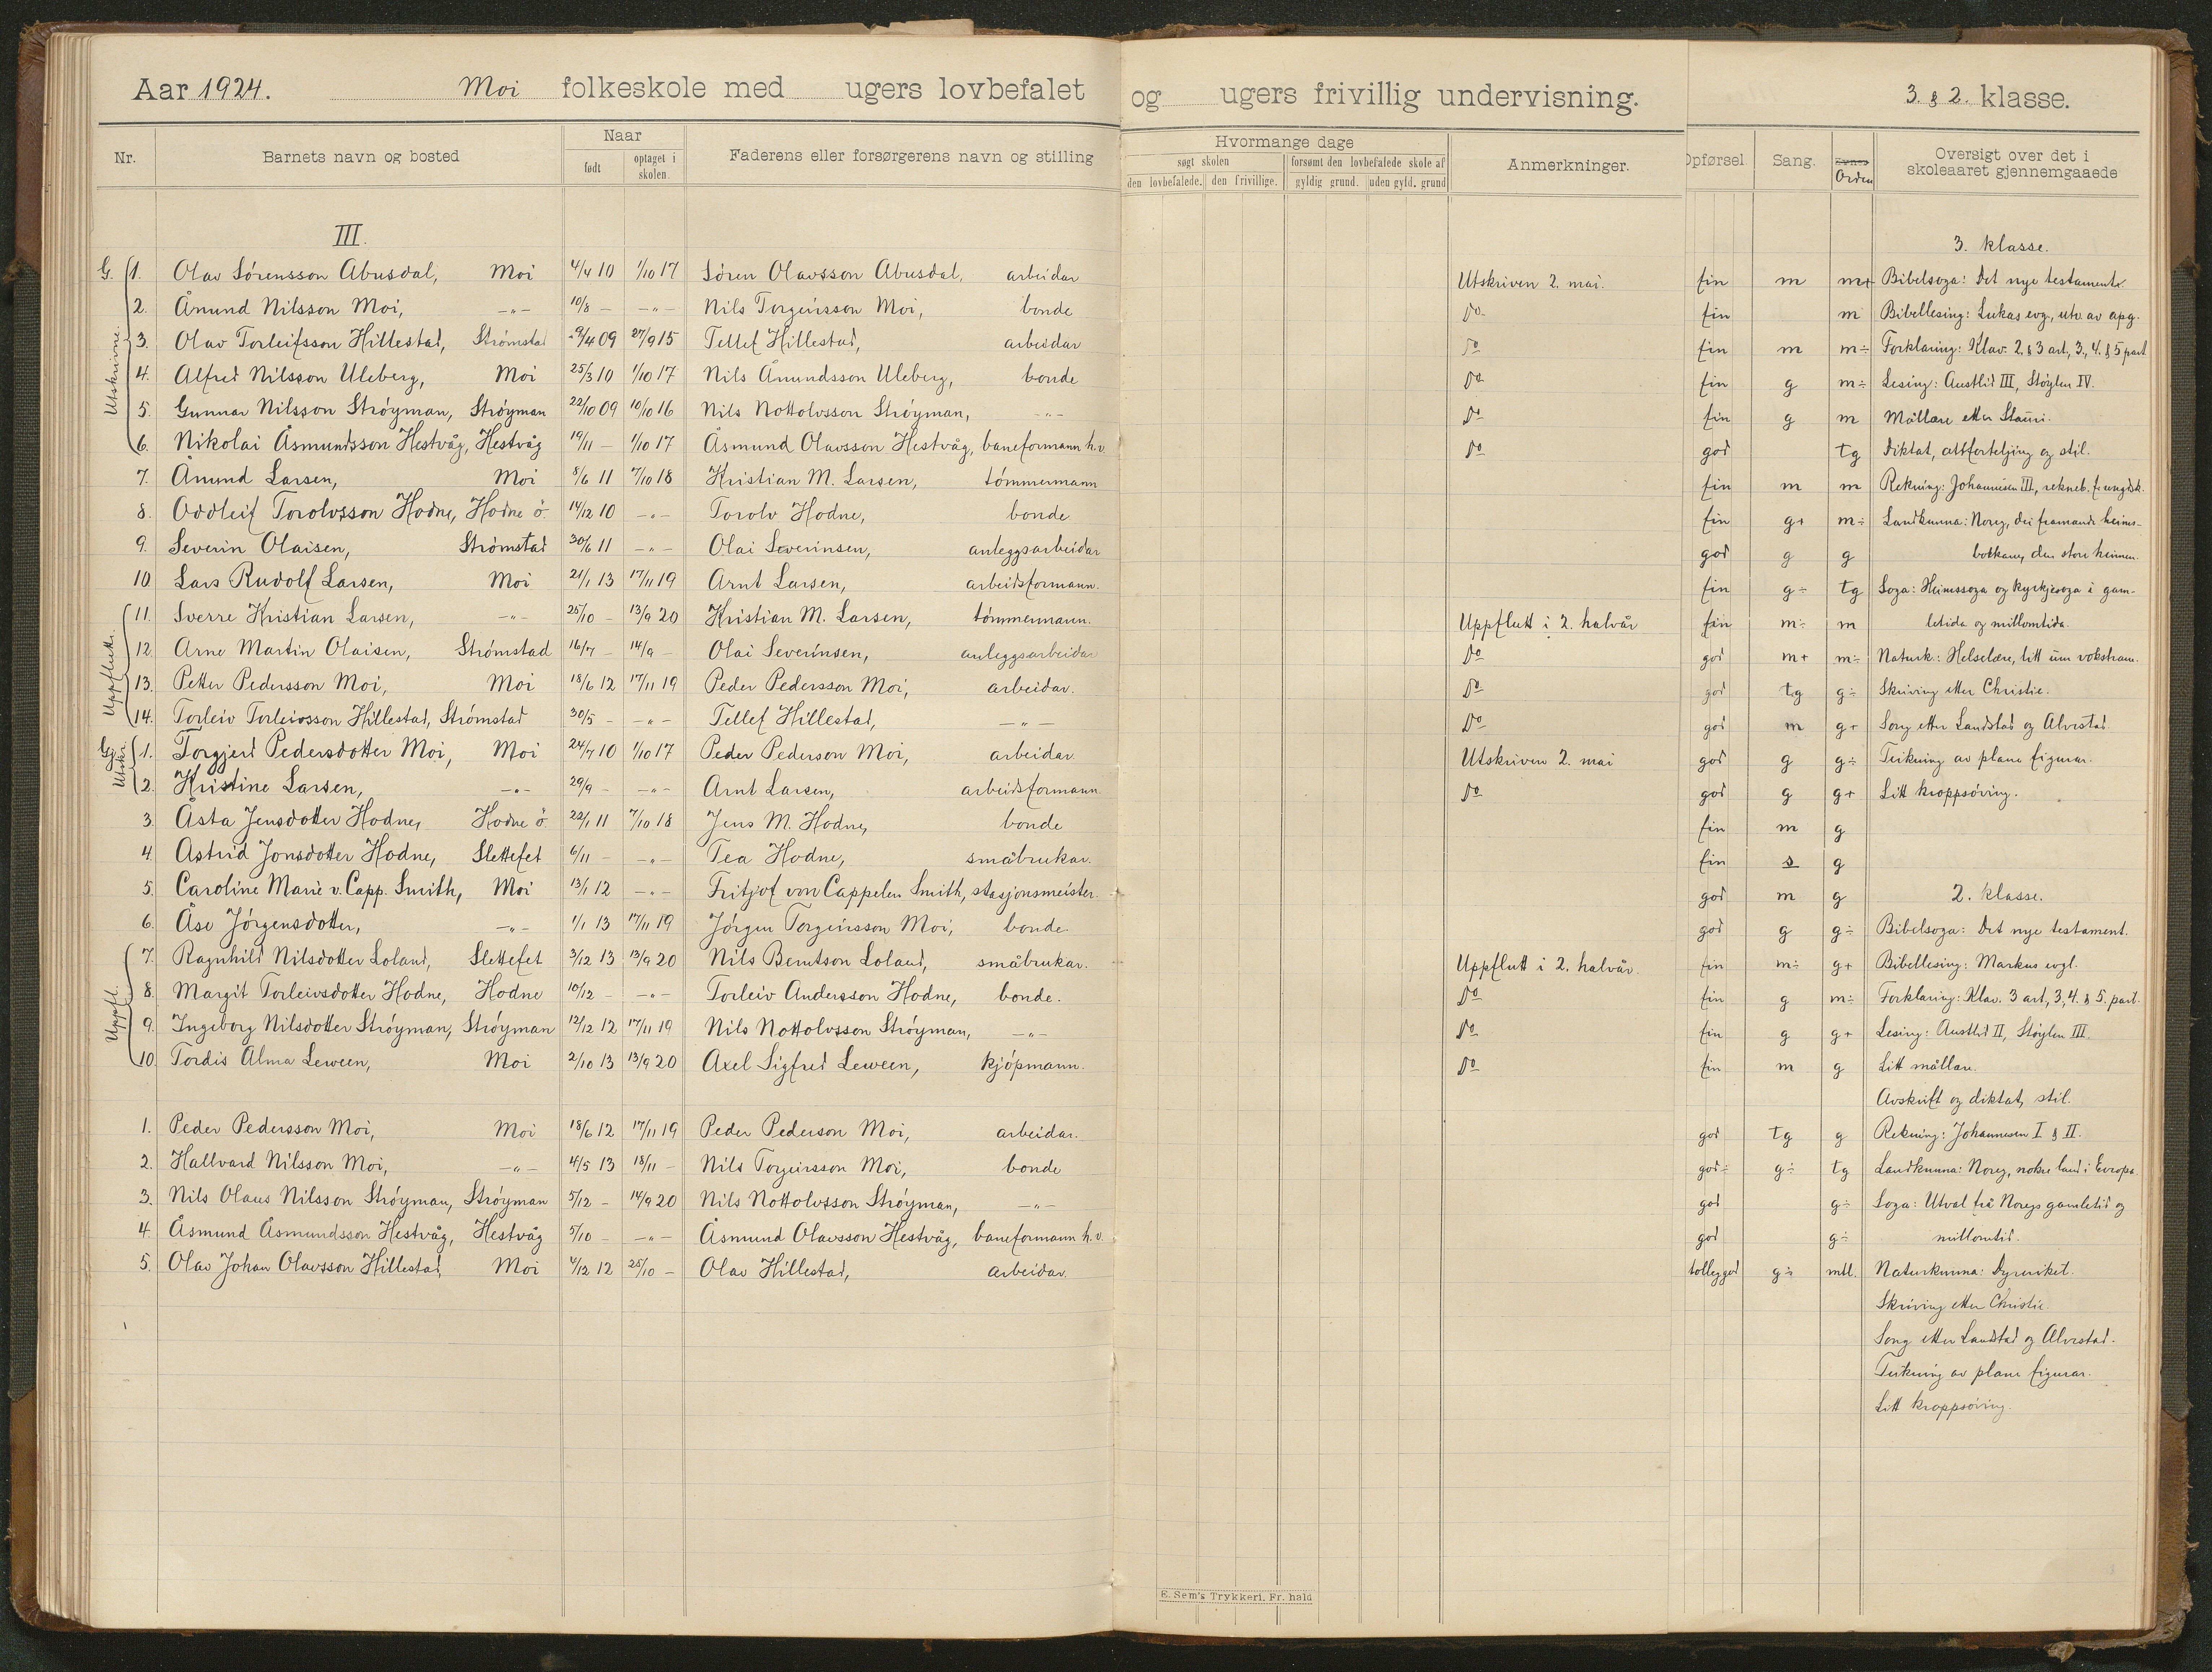 Aar 1924. Moi folkeskole med ugers lovbefalet og ugers frivillig undervisning. 3. & 2. klasse.
Nr. Barnets navn og bosted Naar født optaget i skolen. Faderens eller forsørgerens navn og stilling Hvormange dage søgt skolen den lovbefalede. den frivillige. forsømt den lovbefalede skole af gyldig grund. uden gyld. grund Anmerkninger. Opførsel Sang. Evnes Orden Oversigt over det i skoleaaret gjennemgaaede
III.
3. klasse.
G. Utskrivne.
1. Olav Sørensson Abusdal, Moi 4/4 10 1/10 17 Søren Olavsson Abusdal, arbeidar Utskriven 2. mai. fin m m+ Bibelsoga: Det nye testamente.
2. Åmund Nilsson Moi, -"- 10/8 - -"- Nils Torgeirsson Moi, bonde Do fin m Bibellesing: Lukas evg., utv. av apg.
3. Olav Torleifsson Hillestad, Strømstad 29/4 09 27/9 15 Tellef Hillestad, arbeidar Do fin m m÷ Forklaring: Klav. 2. & 3 art, 3., 4. & 5 part
4. Alfred Nilsson Uleberg, Moi 25/3 10 1/10 17 Nils Åmundsson Uleberg, bonde Do fin g m÷ Lesing: Austlid III, Støylen IV.
5. Gunnar Nilsson Strøyman, Strøyman 22/10 09 10/10 16 Nils Nottolvsson Strøyman, -"- Do fin g m Mållære etter Stauri.
6. Nikolai Åsmundsson Hestvåg, Hestvåg 19/11 - 1/10 17 Åsmund Olavsson Hestvåg, baneformann h.v. Do god tg Diktat, attforteljing og stil.
7. Åmund Larsen, Moi 8/6 11 7/10 18 Kristian M. Larsen, tømmermann fin m m Rekning: Johannesen III, rekneb. f. ungdsk.
8. Oddleif Torolvsson Hodne, Hodne ö. 14/12 10 -"- Torolv Hodne, bonde fin g+ m÷ Landkunna: Noreg, dei framande heims-
9. Severin Olaisen, Strømstad 30/6 11 -"- Olai Severinsen, anleggsarbeidar god g g bolkane, den store heimen.
10. Lars Rudolf Larsen, Moi 21/1 13 17/11 19 Arnt Larsen, arbeidsformann. fin g÷ tg Soga: Heimssoga og kyrkjesoga i gam-
Uppflutte.
11. Sverre Kristian Larsen, -"- 25/10 - 13/9 20 Kristian M. Larsen, tømmermann. Uppflutt i 2. halvår fin m÷ m letida og millomtida.
12. Arne Martin Olaisen, Strømstad 16/7 - 14/9 - Olai Severinsen, anleggsarbeidar Do god m+ m÷ Naturk.: Helselære, litt um vokstrane.
13. Petter Pedersson Moi, Moi 18/6 12 17/11 19 Peder Pedersson Moi, arbeidar. Do god tg g÷ Skriving etter Christie.
14. Torleiv Torleivsson Hillestad, Strømstad 30/5 - -"- Tellef Hillestad, -"- Do god m g+ Song etter Landstad og Alvestad.
G. Utskr.
1. Torgjerd Pedersdotter Moi, Moi 24/7 10 1/10 17 Peder Pederson Moi, arbeidar Utskriven 2. mai god g g÷ Teikning av plane figurar.
2. Kristine Larsen, -"- 29/9 - -"- Arnt Larsen, arbeidsformann Do god g g+ Litt kroppsøving.
3. Åsta Jensdotter Hodne, Hodne ö. 22/1 11 7/10 18 Jens M. Hodne, bonde fin m g
4. Astrid Jonsdotter Hodne, Slettefet 6/11 - -"- Tea Hodne, småbrukar. fin s g
5. Caroline Marie v. Capp. Smith, Moi 13/1 12 -"- Fritjof von Cappelen Smith, stasjonsmeister. god m g 2. klasse.
6. Åse Jørgensdotter, -"- 1/1 13 17/11 19 Jørgen Torgeirsson Moi, bonde. god g g÷ Bibelsoga: Det nye testament.
Uppfl.
7. Ragnhild Nilsdotter Loland, Slettefet 3/12 13 13/9 20 Nils Berntson Loland, småbrukar. Uppflutt i 2. halvår. fin m÷ g+ Bibellesing: Markus evgl.
8. Margit Torleivsdotter Hodne, Hodne 10/12 - -"- Torleiv Andersson Hodne, bonde. Do fin g m÷ Forklaring: Klav. 3 art, 3, 4. & 5. part.
9. Ingeborg Nilsdotter Strøyman, Strøyman 12/12 12 17/11 19 Nils Nottolvsson Strøyman, -"- Do fin g g+ Lesing: Austlid II, Støylen III.
10. Tordis Alma Leween, Moi 2/10 13 13/9 20 Axel Sigfred Leween, kjøpmann. Do fin m g Litt mållære.
Avskrift og diktat, stil.
1. Peder Pedersson Moi, Moi 18/6 12 17/11 19 Peder Pederson Moi, arbeidar. god tg g Rekning: Johannesen I & II.
2. Hallvard Nilsson Moi, -"- 4/5 13 18/11 - Nils Torgeirsson Moi, bonde god÷ g÷ tg Landkunna: Noreg, nokre land i Evropa.
3. Nils Olaus Nilsson Strøyman, Strøyman 5/12 - 14/9 20 Nils Nottolvsson Strøyman, -"- god g÷ Soga: Utval frå Noregs gamletid og
4. Åsmund Åsmundsson Hestvåg, Hestvåg 5/10 - -"- Åsmund Olavsson Hestvåg, baneformann h.v. god g÷ millomtid.
5. Olav Johan Olavsson Hillestad, Moi 4/12 12 25/10 - Olav Hillestad, arbeidar. tolleg god g÷ mtl. Naturkunna: Dyreriket.
Skriving etter Christie.
Song etter Landstad og Alvestad.
Teikning av plane figurar.
Litt kroppsøving.
E. Sem's Trykkeri, Fr. hald